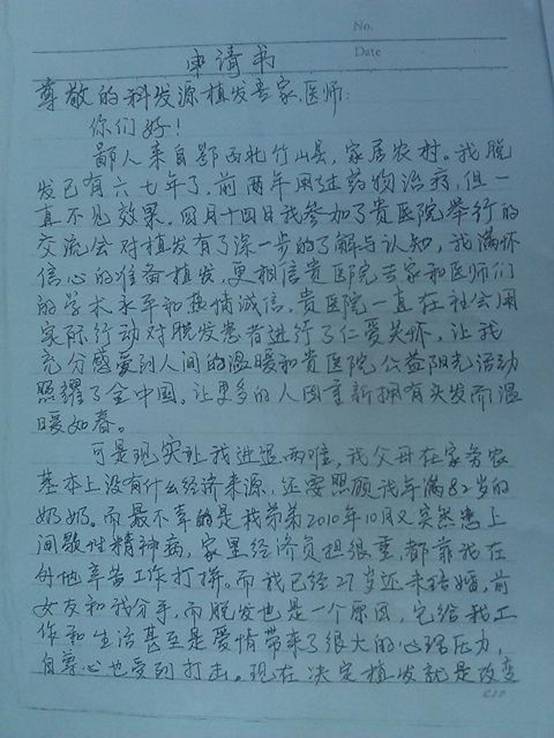 No.
Date
申请书
尊敬的科发源植发专家、医师:
你们好!
鄙人来自鄂西北竹山县,家居农村。我脱
发已有六七年了,前两年用过药物治疗,但一
直不见效果。四月十四日我参加了贵医院举行的
交流会对植发有了深一步的了解与认知,我满怀
信心的准备植发,更相信贵医院专家和医师们
的学术水平和热情诚信。贵医院一直在社会用
实际行动对脱发患者进行了仁爱关怀,让我
充分感受到人间的温暖和贵医院公益阳光活动
照耀了全中国。让更多的人因重新拥有头发而温
暖如春。
可是现实让我进退两难,我父母在家务农
基本上没有什么经济来源,还要照顾我年满82岁的
奶奶。而最不幸的是我弟弟2010年10月又突然患上
间歇性精神病,家里经济负担很重,都靠我在
外地辛苦工作打拼。而我已经27岁还未结婚,前
女友和我分手,而脱发也是一个原因,它给我工
作和生活甚至是爱情带来了很大的心理压力,
自尊心也受到打击。现在决定植发就是改变